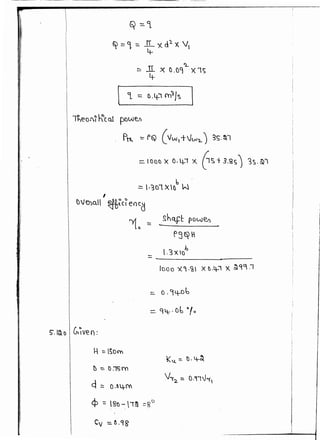 Q = q
Q = q = π/4 × d² × V₁
= π/4 × 0.09² × 75
q = 0.47 m³/s
Theoretical power
Pth = ρQ (Vw₁ + Vw₂) 35.27
= 1000 × 0.47 × (75 + 3.85) 35.27
= 1.307 × 10⁶ W
Overall efficiency
η₀ = shaft power / ρgQH
= 1.3 × 10⁶ / 1000 × 9.81 × 0.47 × 299.7
= 0.9406
= 94.06 %
Given:
H = 150m
Ku = 0.42
D = 0.75m
Vr₂ = 0.97Vr₁
d =
ϕ = 180 - 172 = 8°
Cv = 0.98